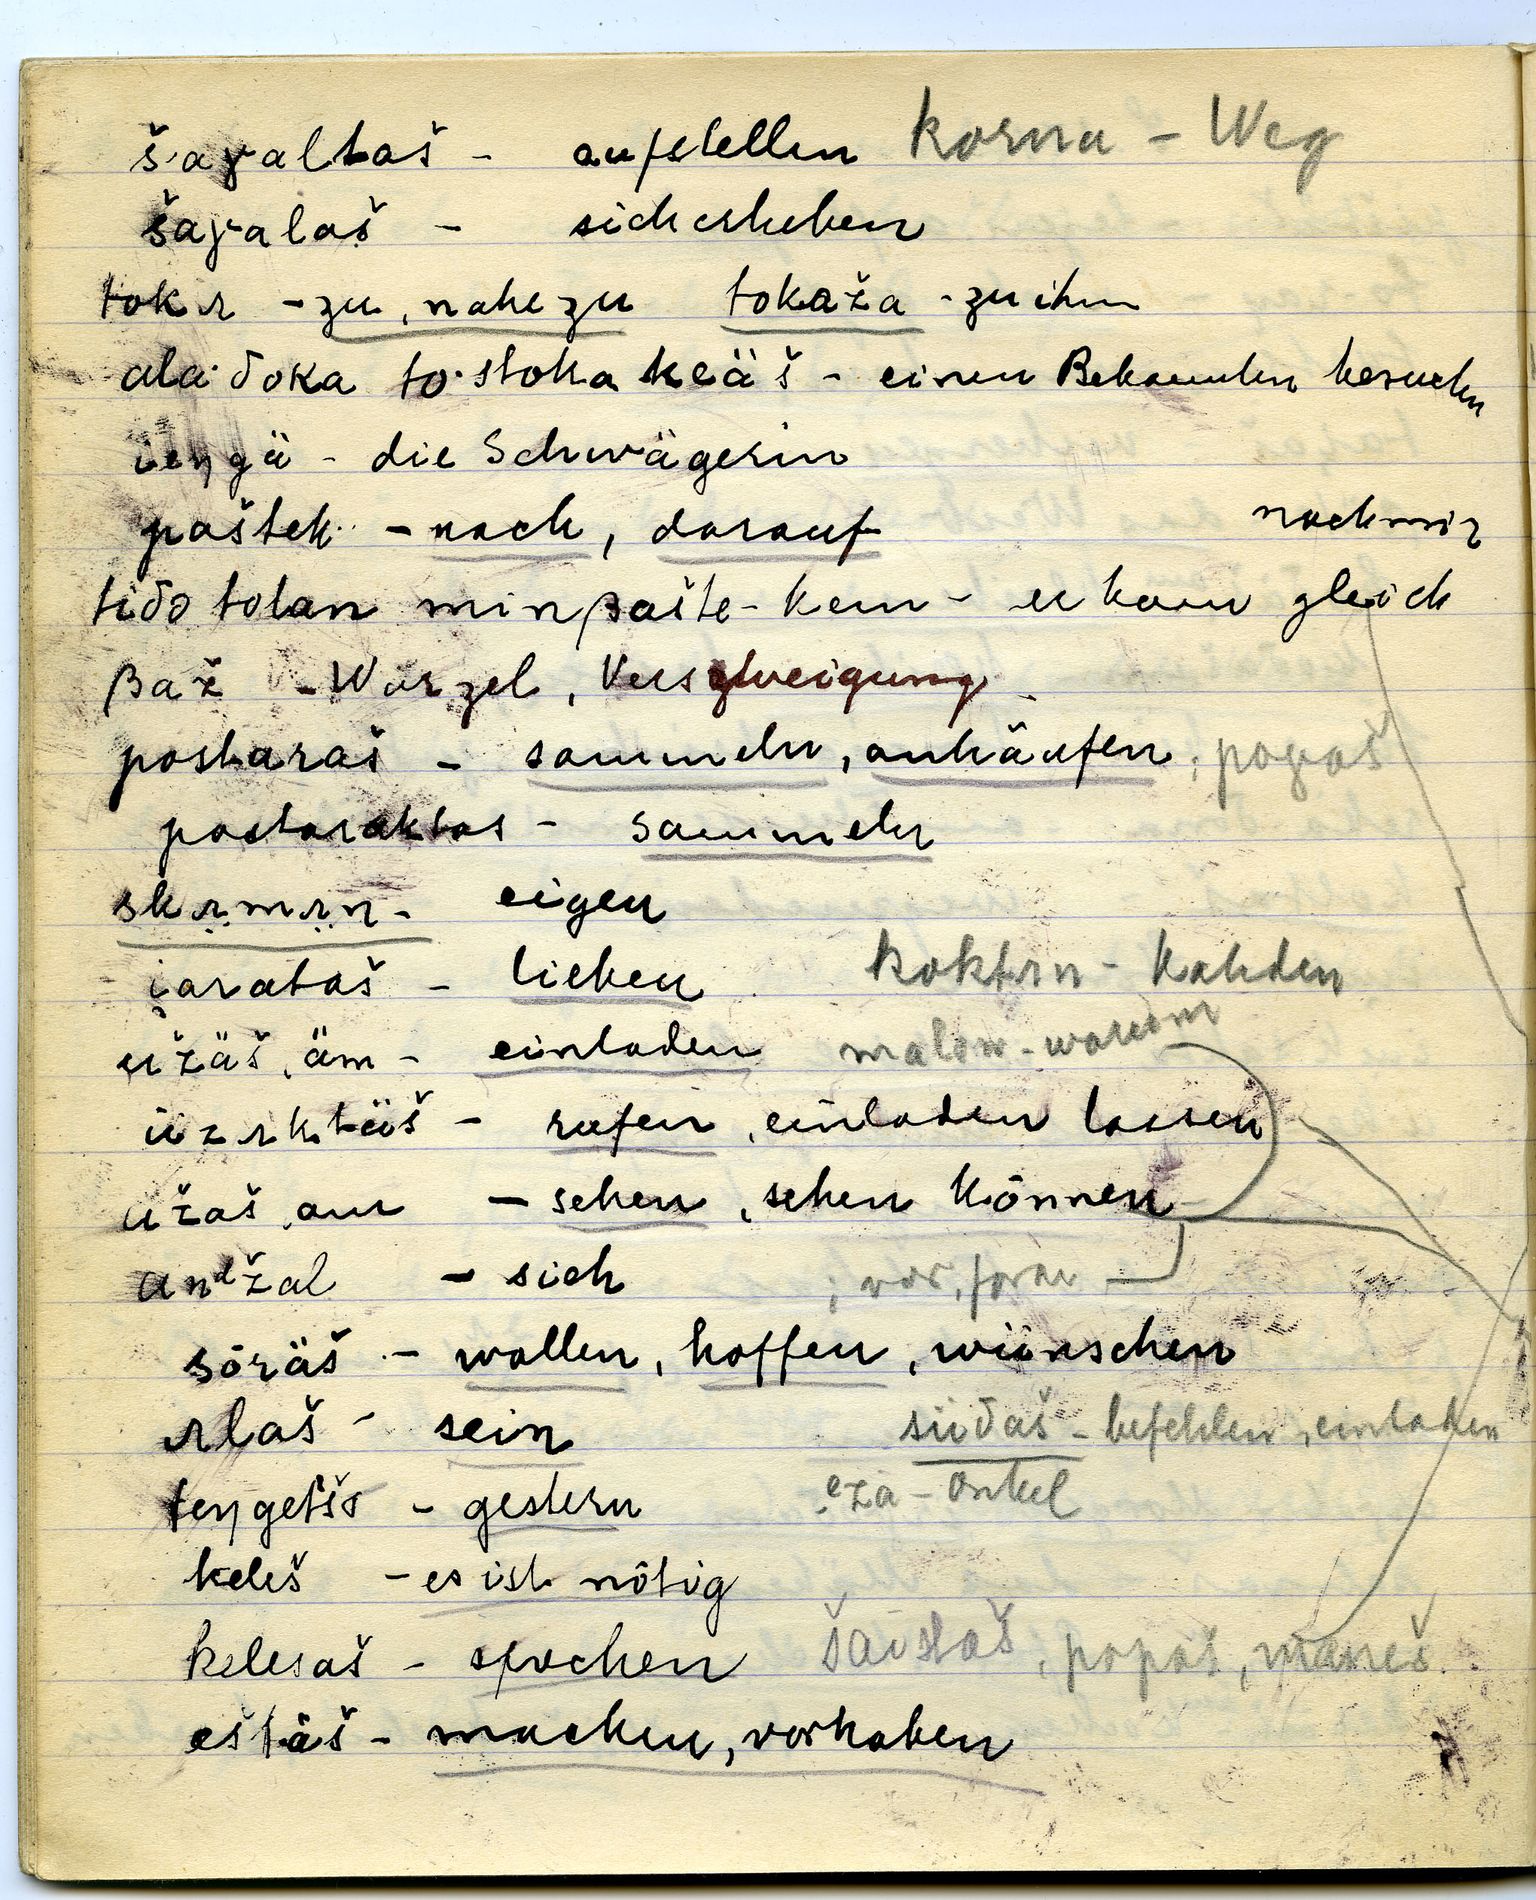 šaɣaltaš - aufstellen korna - Weg
šaɣalaš - sich erheben
tokɪ - zu, nahe zu tokaža - zu ihm
ala·ðoka to·štoka keäš - einen Bekannten besuchen
i̯eŋgä - die Schwägerin
paštek - nach, darauf nach mir
tiðə tolan min pašte-kem - er kam gleich
βaž - Wurzel, Verzweigung
postaraš - sammeln, anhäufen; poɣaš
postaraktas - sammeln
skɪ̤mɪ̤n - eigen
i̯arataš - lieben koktɪn - kahden
üžäš, äm - einladen malan - warum
üzɪktäš - rufen, einladen lassen
užaš, am - sehen, sehen können
anᵈžal - sich ; vor, foran
söräš - wollen, hoffen, wünschen
ɪlaš - sein süðaš - befehlen, einladen
teŋgetšə - gestern eza - Onkel
keleš - es ist nötig
kelesaš - sprechen šaistaš, popaš, maneš
eštäš - machen, vorhaben